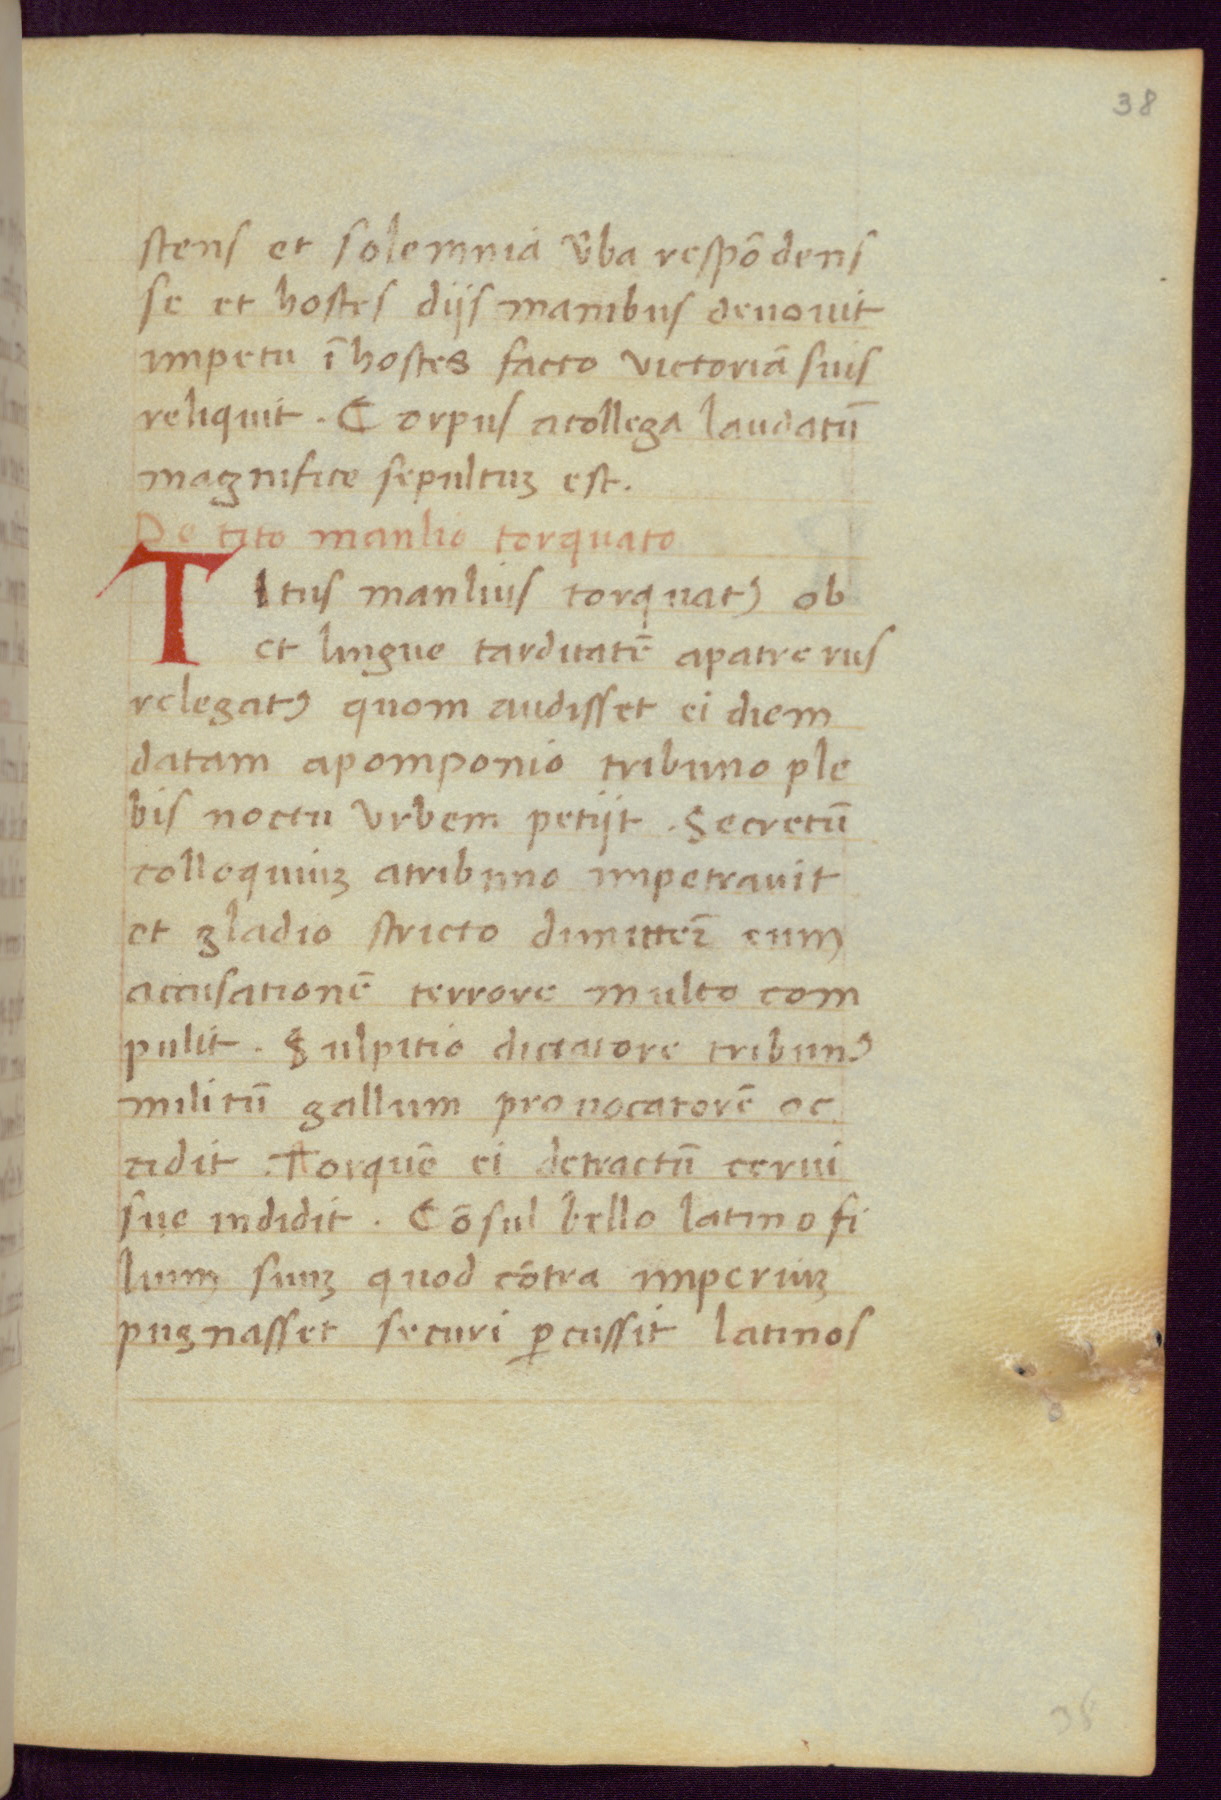 38
stens et solemnia v̄ba respōdens
se et hostes dijs manibus deuouit
impetu ī hostes facto victoriā suis
reliquit. Corpus acollega laudatū
magnifice sepultuꝫ est.
De tito manlio torquato
Titus manlius torquatꝰ ob
et lingue tarditatē apatre rus
relegatꝰ quom audisset ei diem
datam apomponio tribuno ple
bis noctu vrbem petijt. Secretū
colloquiuꝫ atribuno impetrauit
et gladio stricto dimitterē eum
accusationē terrore multo com
pulit. Sulpitio dictatore tribunꝰ
militū gallum prouocatorē oc
cidit. Torquē ei detractū cerui
sue indidit. Cōsul bello latino fi
lium suuꝫ quod cōtra imperiuꝫ
pugnasset securi ꝑcussit latinos
38